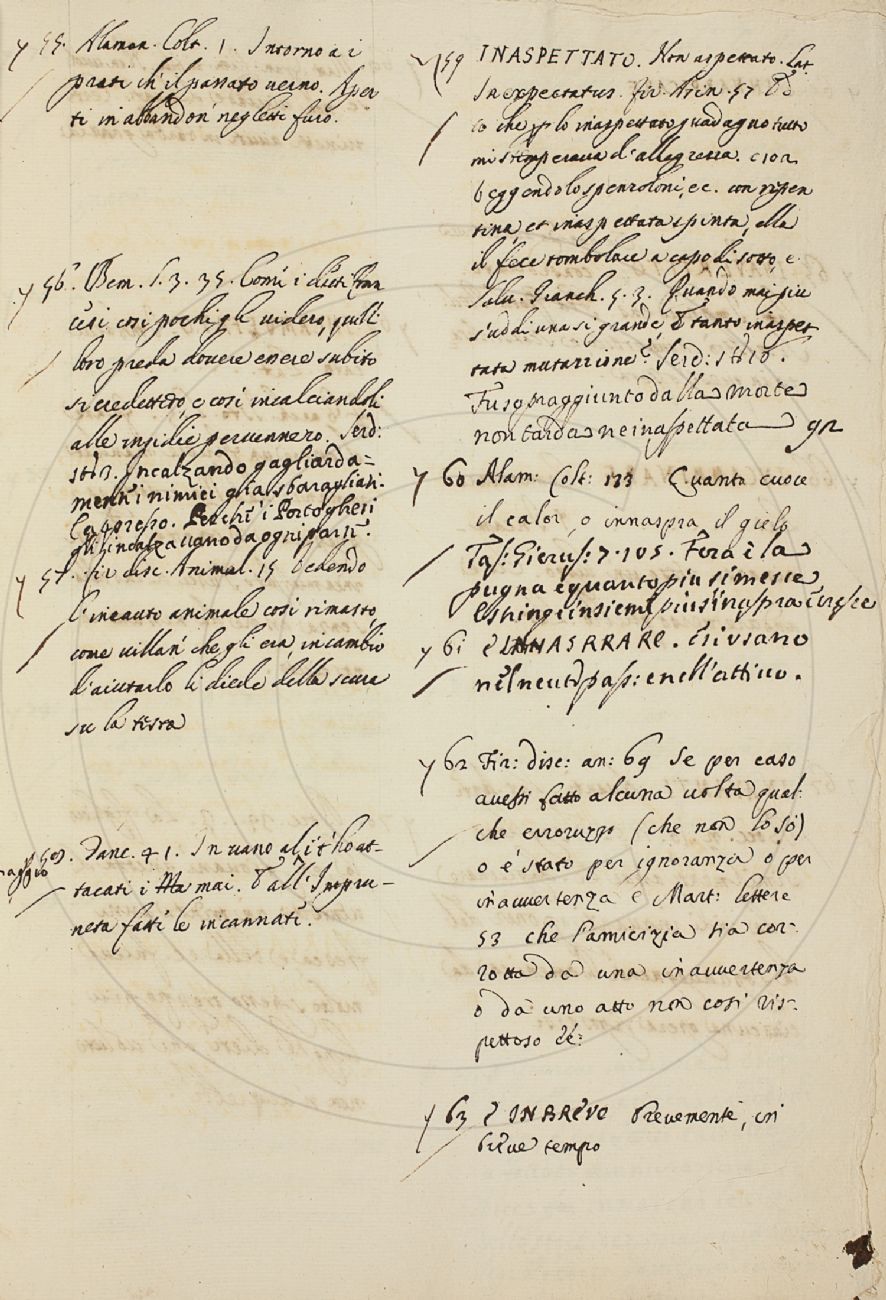 55. Alaman. Colt. 1. Intorno a i
prati ch' il passato verno. Aper
ti in abbandon' neglecti furo.
56. Bem. S. 3. 35. Com' i detti
cesi così pochi gli videro,
loro preda dovere essere subito
si credettero, e così incalciandoli
alle insidie pervennero. Serd:
Incalzando gagliarda=
ment' i nimici gli assbaragliati.
E appresso. Perche' i Portogheri
gli incalzavano da ogni parte.
57. fir disc. Animal. 15 vedendo
l'incauto animale così rimasto,
come villan' che gli era, in cambio
d'aiutarlo li diede della scure
su la testa
58. Panc. 41. In vano al
tacati i Ma mai. E all' Impru-
neta fatti le incannati.
59 INASPETTATO. Non aspettato. Lat
Inexpectatus. fir. Asin. 57
co che p lo inaspettato guadagno tutto
mi stemperava d'allegrezza. e 102
veggendolo spenzoloni, ec. con repen
tina, et inaspettata spinta, ella
il fece tombolare a capo di sotto, e
Salv. Granch. 5. 3. Quando mai piu
s'udì una sì grande, e tanto inaspet
tata mutazione? Serd: st
Fu sopraggiunto dalla morte
non tarda ne inaspettata
60 Alam: Colt: 133 Quanto cuoce
il calor, o innaspra il gielo
Tas: Gierus: 7. 105. Fera è la
pugna e quanto piu si mesce
E stringe insieme piu s'inaspra e cresce
61 E INNASPRARE. E si usano
nel neut: pass: e nell'attivo.
62 Fir: disc: an: 69 Se per caso
avessi fatto alcuna volta qual:
che erroruzzo (che non lo so)
o è stato per ignoranza o per
inavvertenza e Mart: lettere
53 che l'amicizia sia cor-
rotta da una inavvertenza
o da uno atto non così ris-
pettoso &c:
63 E INBREVE Brevemente, in
breve tempo